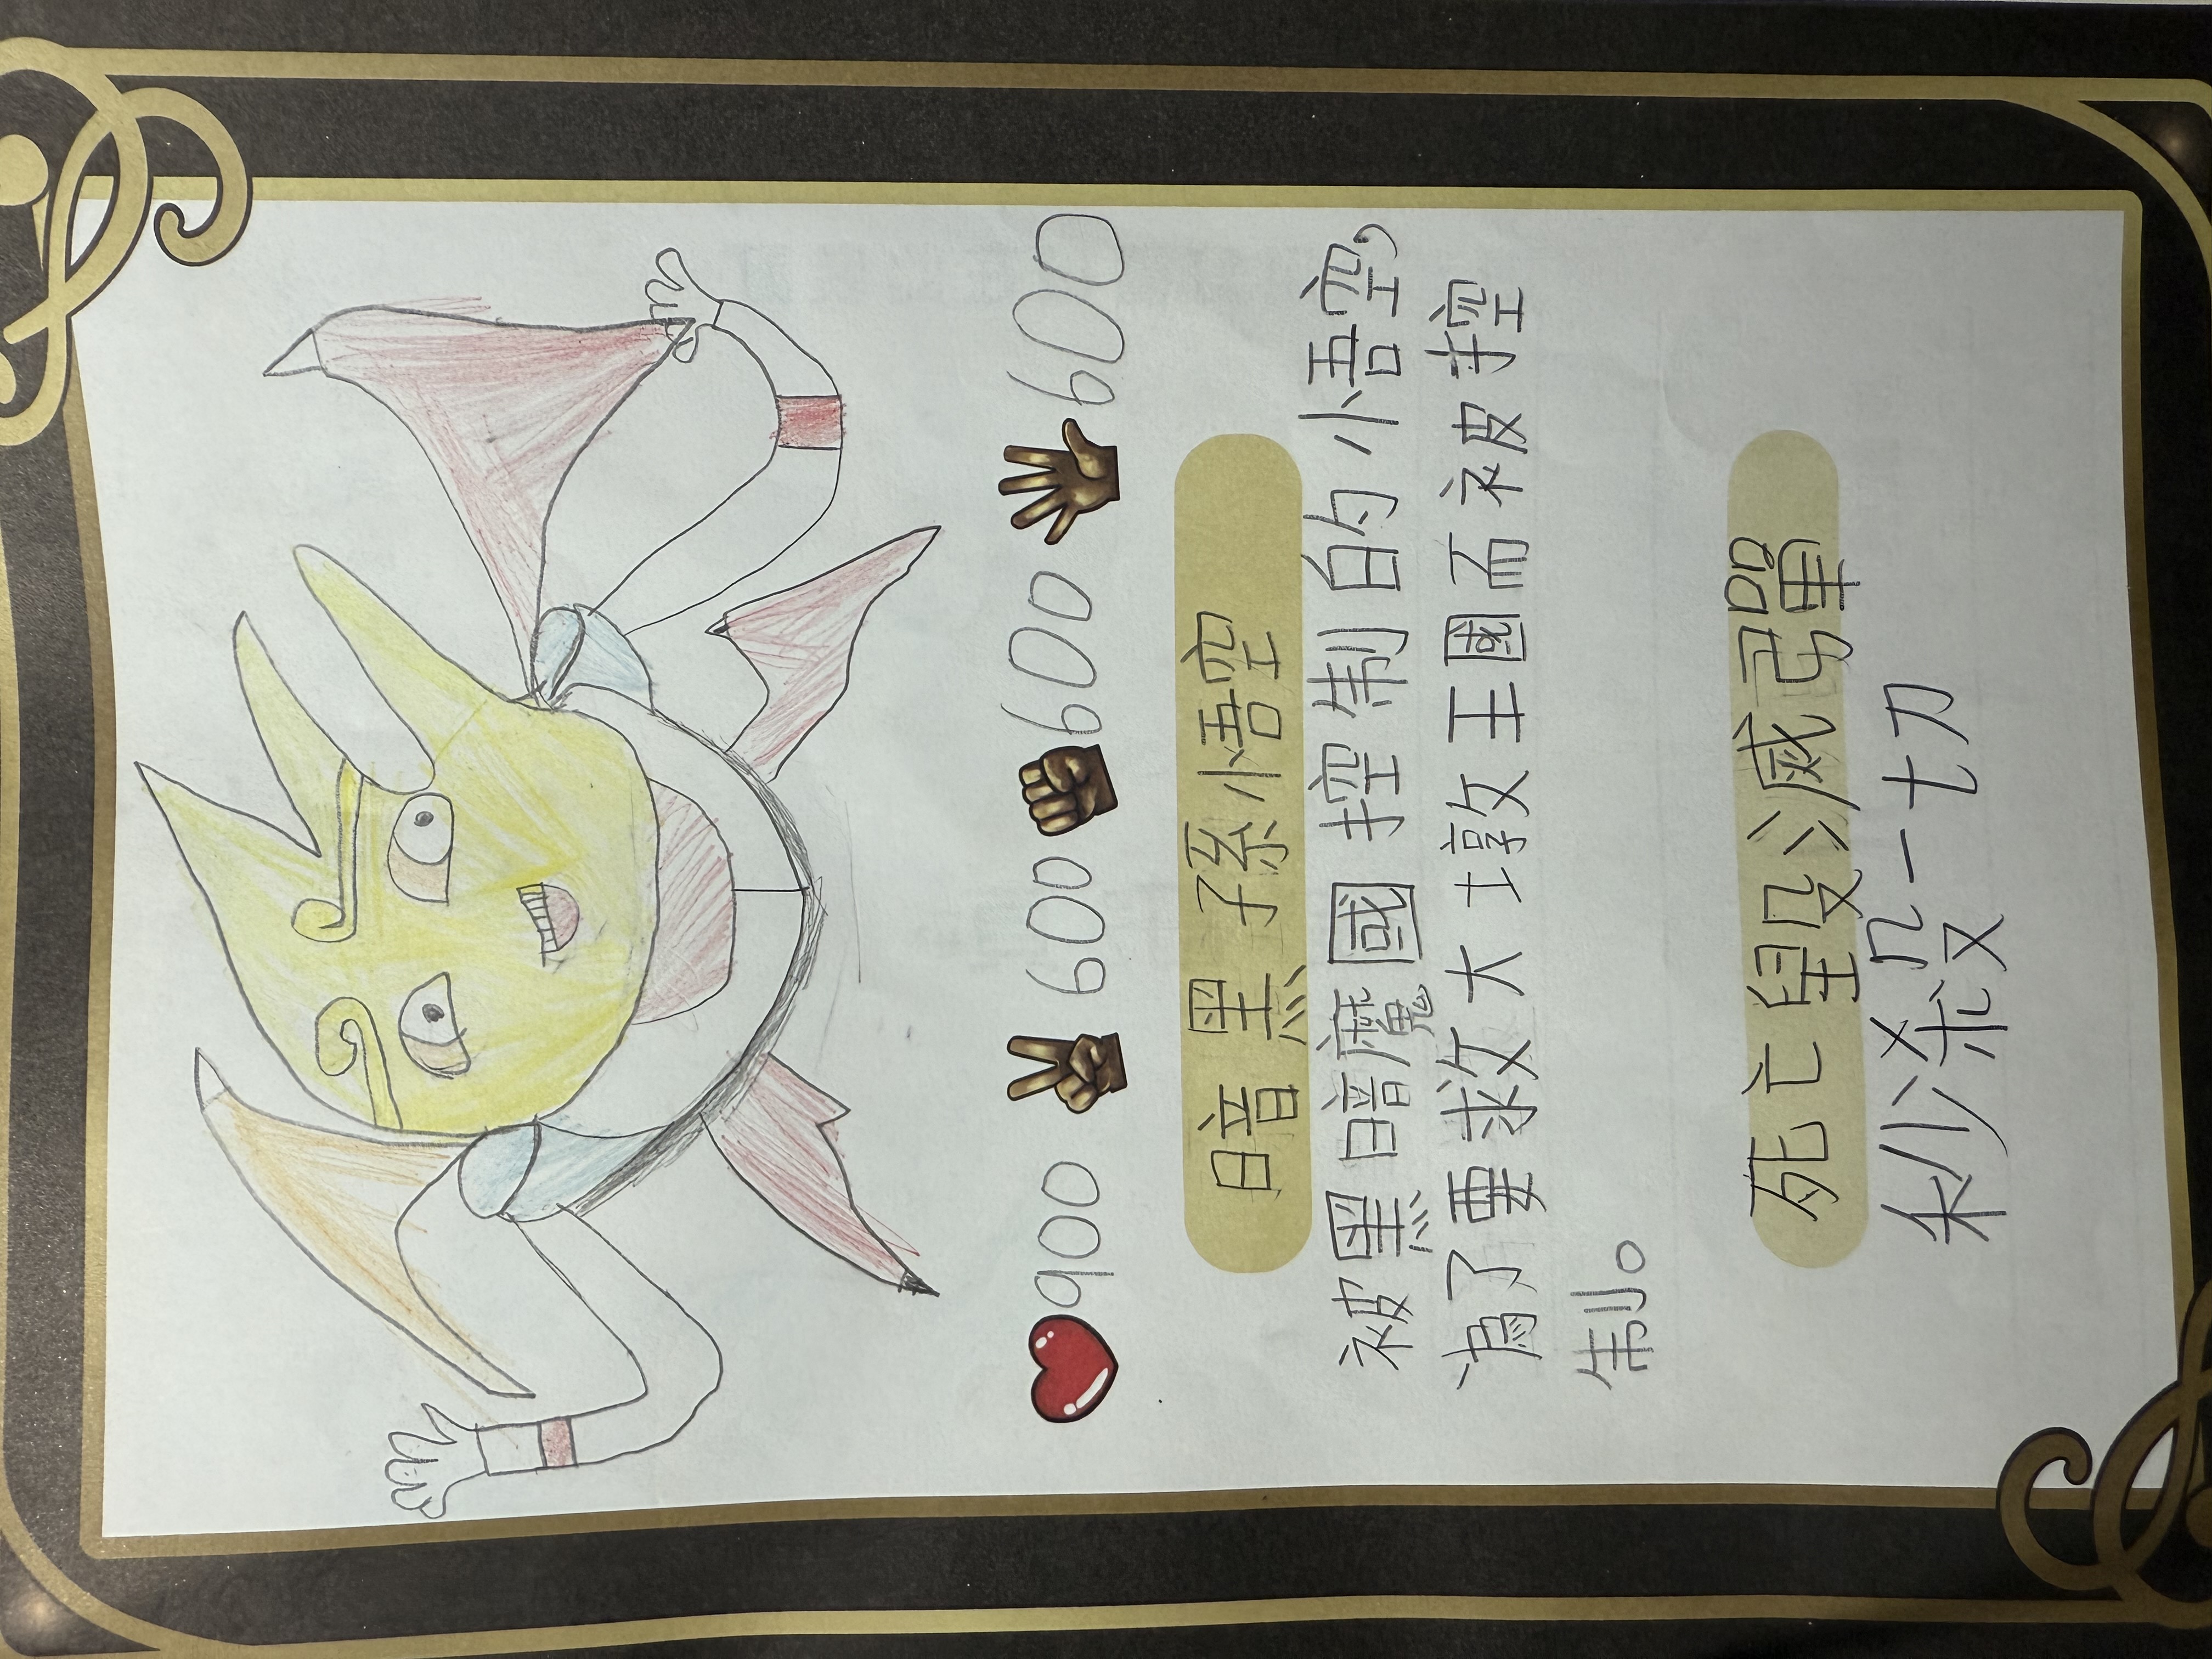 900 600 600 600
暗黑孫悟空
被黑暗魔國控制的小悟空，
為了要求救大墩王國而被控
制。
死亡毀滅彈
秒殺一切